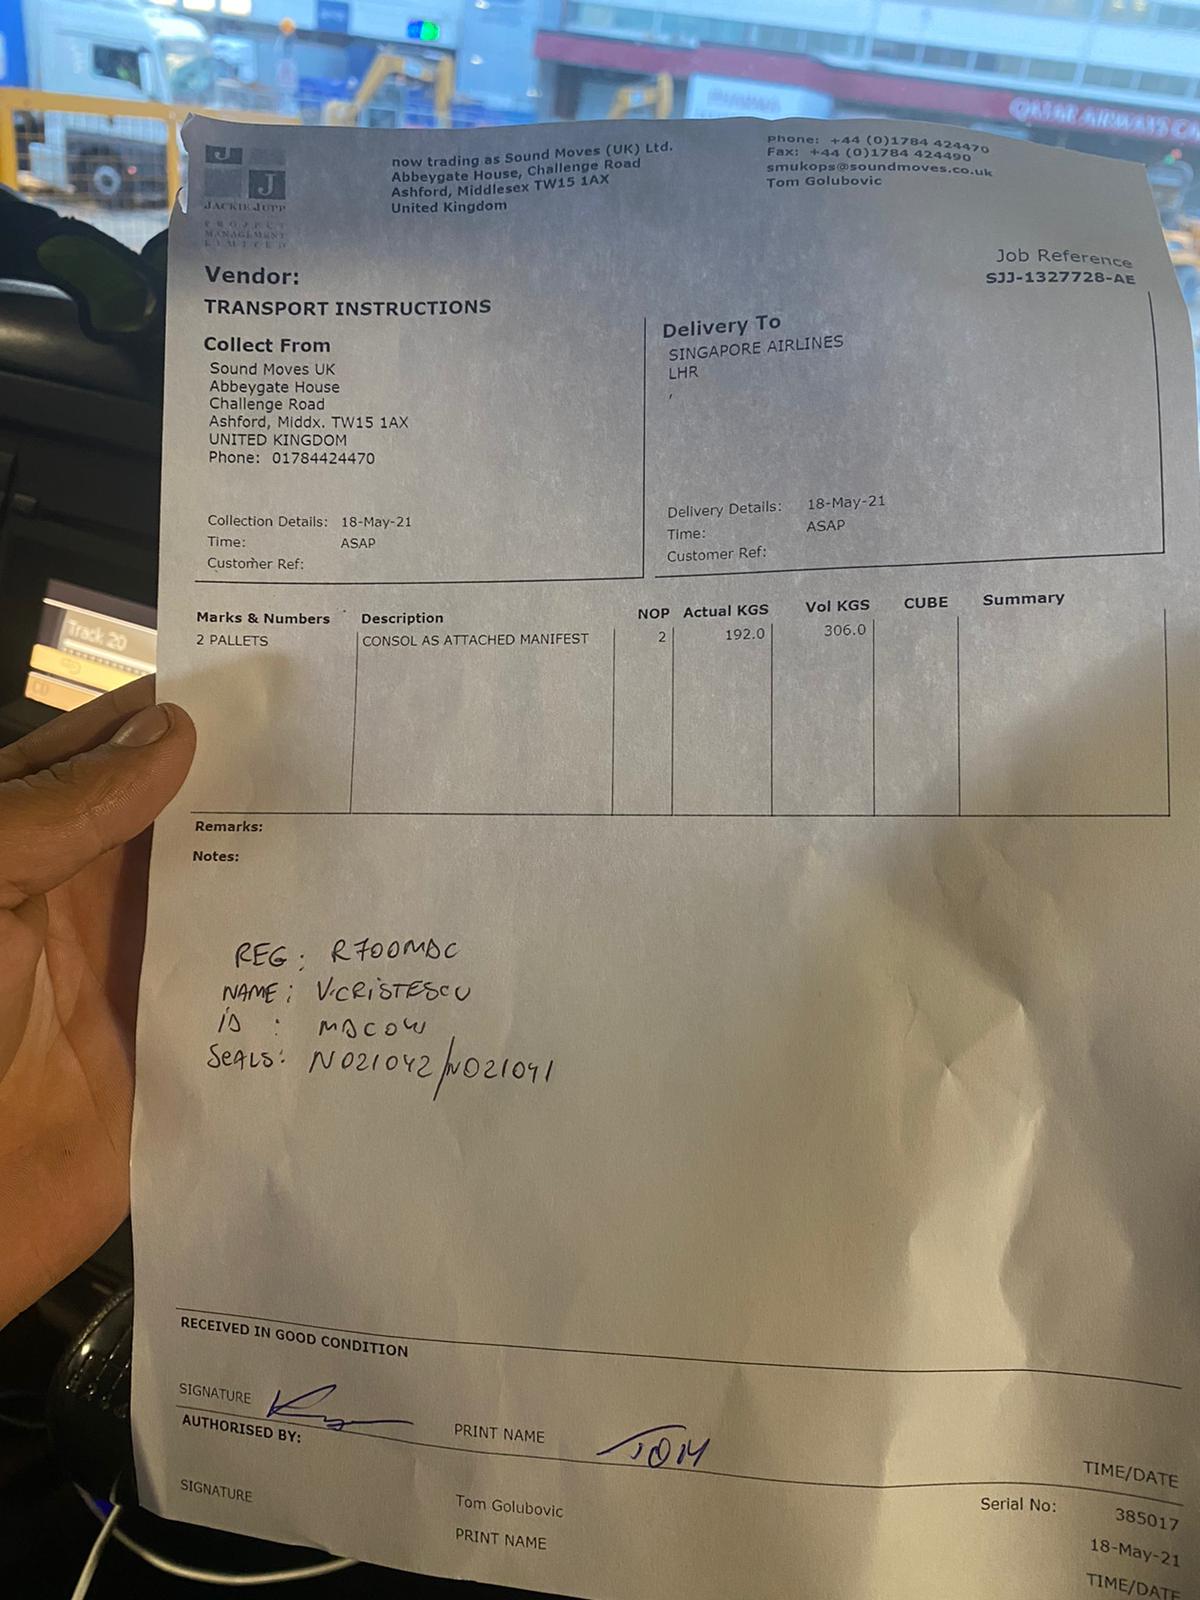 J
J
JACKIE JUPP
PROJECT
MANAGEMENT
LIMITED
now trading as Sound Moves (UK) Ltd.
Abbeygate House, Challenge Road
Ashford, Middlesex TW15 1AX
United Kingdom
phone: +44 (0)1784 424470
Fax: +44 (0)1784 424490
smukops@soundmoves.co.uk
Tom Golubovic
QATAR AIRWAYS CA
Job Reference
SJJ-1327728-AE
Vendor:
TRANSPORT INSTRUCTIONS
Collect From
Sound Moves UK
Abbeygate House
Challenge Road
Ashford, Middx. TW15 1AX
UNITED KINGDOM
Phone: 01784424470
Collection Details: 18-May-21
Time: ASAP
Customer Ref:
Delivery To
SINGAPORE AIRLINES
LHR
,
Delivery Details: 18-May-21
Time: ASAP
Customer Ref:
Marks & Numbers Description NOP Actual KGS Vol KGS CUBE Summary
2 PALLETS CONSOL AS ATTACHED MANIFEST 2 192.0 306.0
Track 20
CD
Remarks:
Notes:
REG: R700MDC
NAME: V.CRISTESCU
ID : MDCOW
SEALS: N021042/N021041
RECEIVED IN GOOD CONDITION
SIGNATURE PRINT NAME TOM TIME/DATE
AUTHORISED BY:
Serial No: 385017
Tom Golubovic 18-May-21
SIGNATURE PRINT NAME TIME/DATE